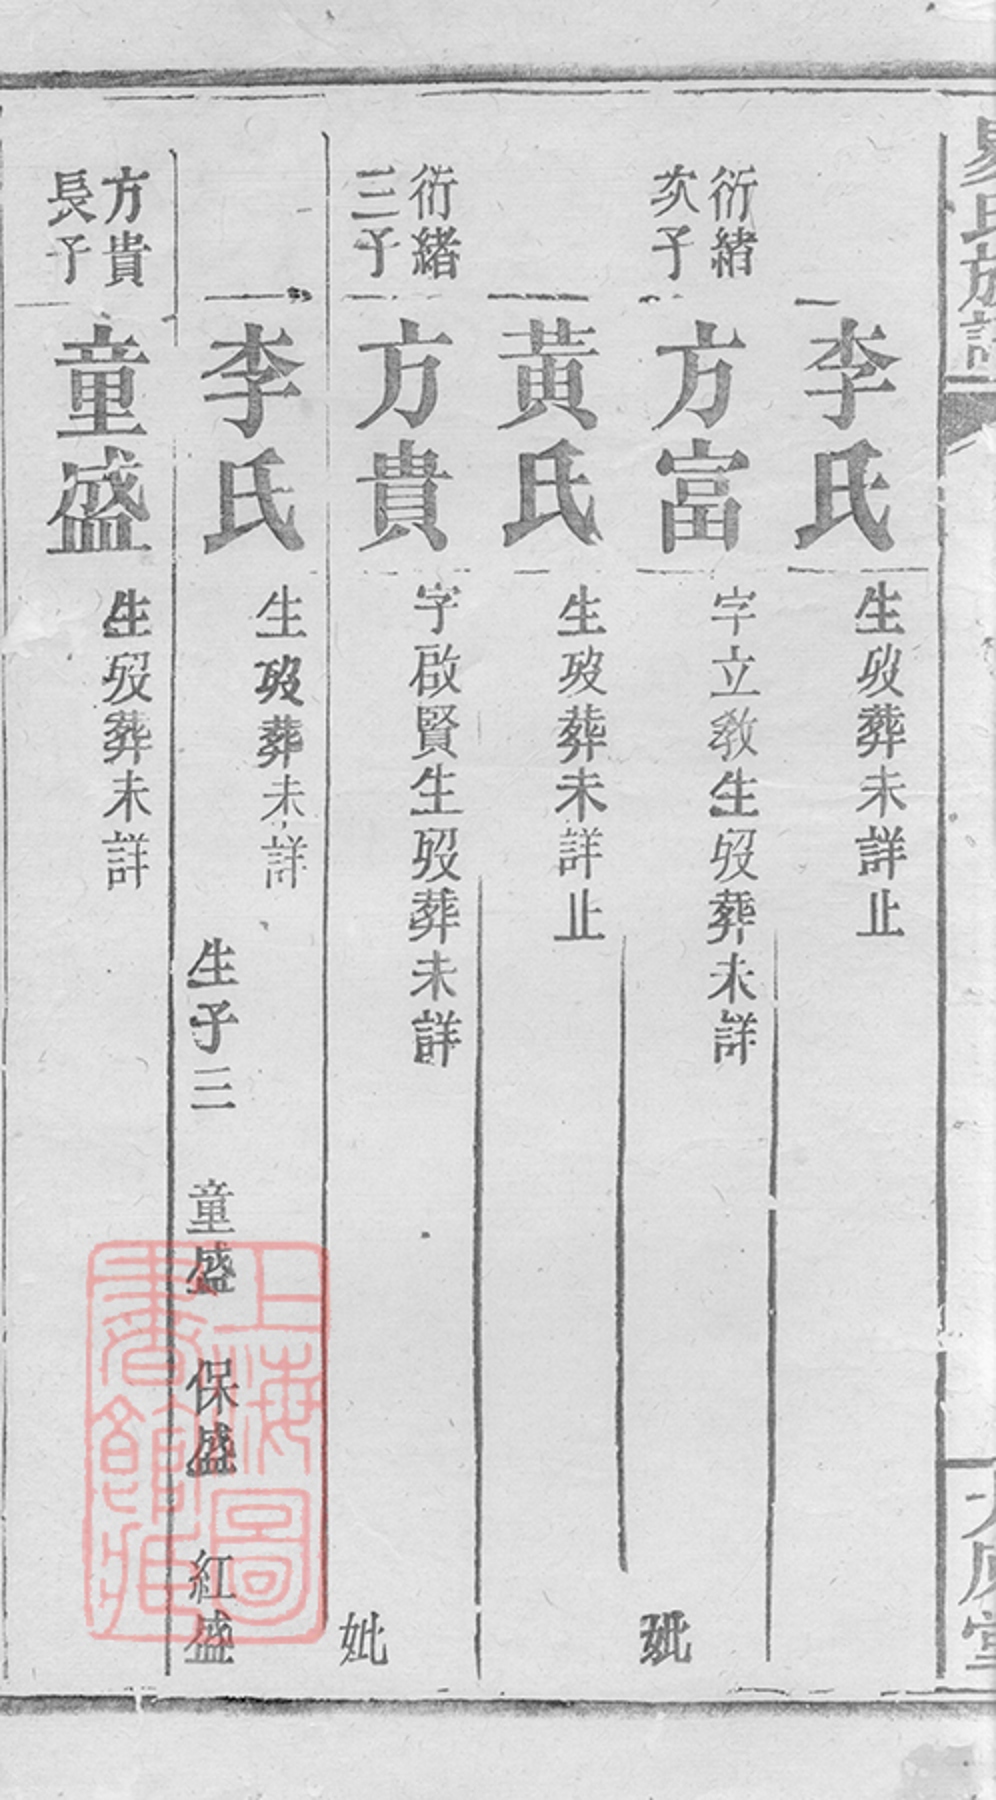 易氏族譜
李氏
生歿葬未詳止
衍緒
次子
方富
字立教生歿葬未詳
妣
黃氏
生歿葬未詳止
衍緒
三子
方貴
字啟賢生歿葬未詳
妣
李氏
生歿葬未詳
生子三 童盛 保盛 紅盛
方貴
長子
童盛
生歿葬未詳
上海圖
書館藏